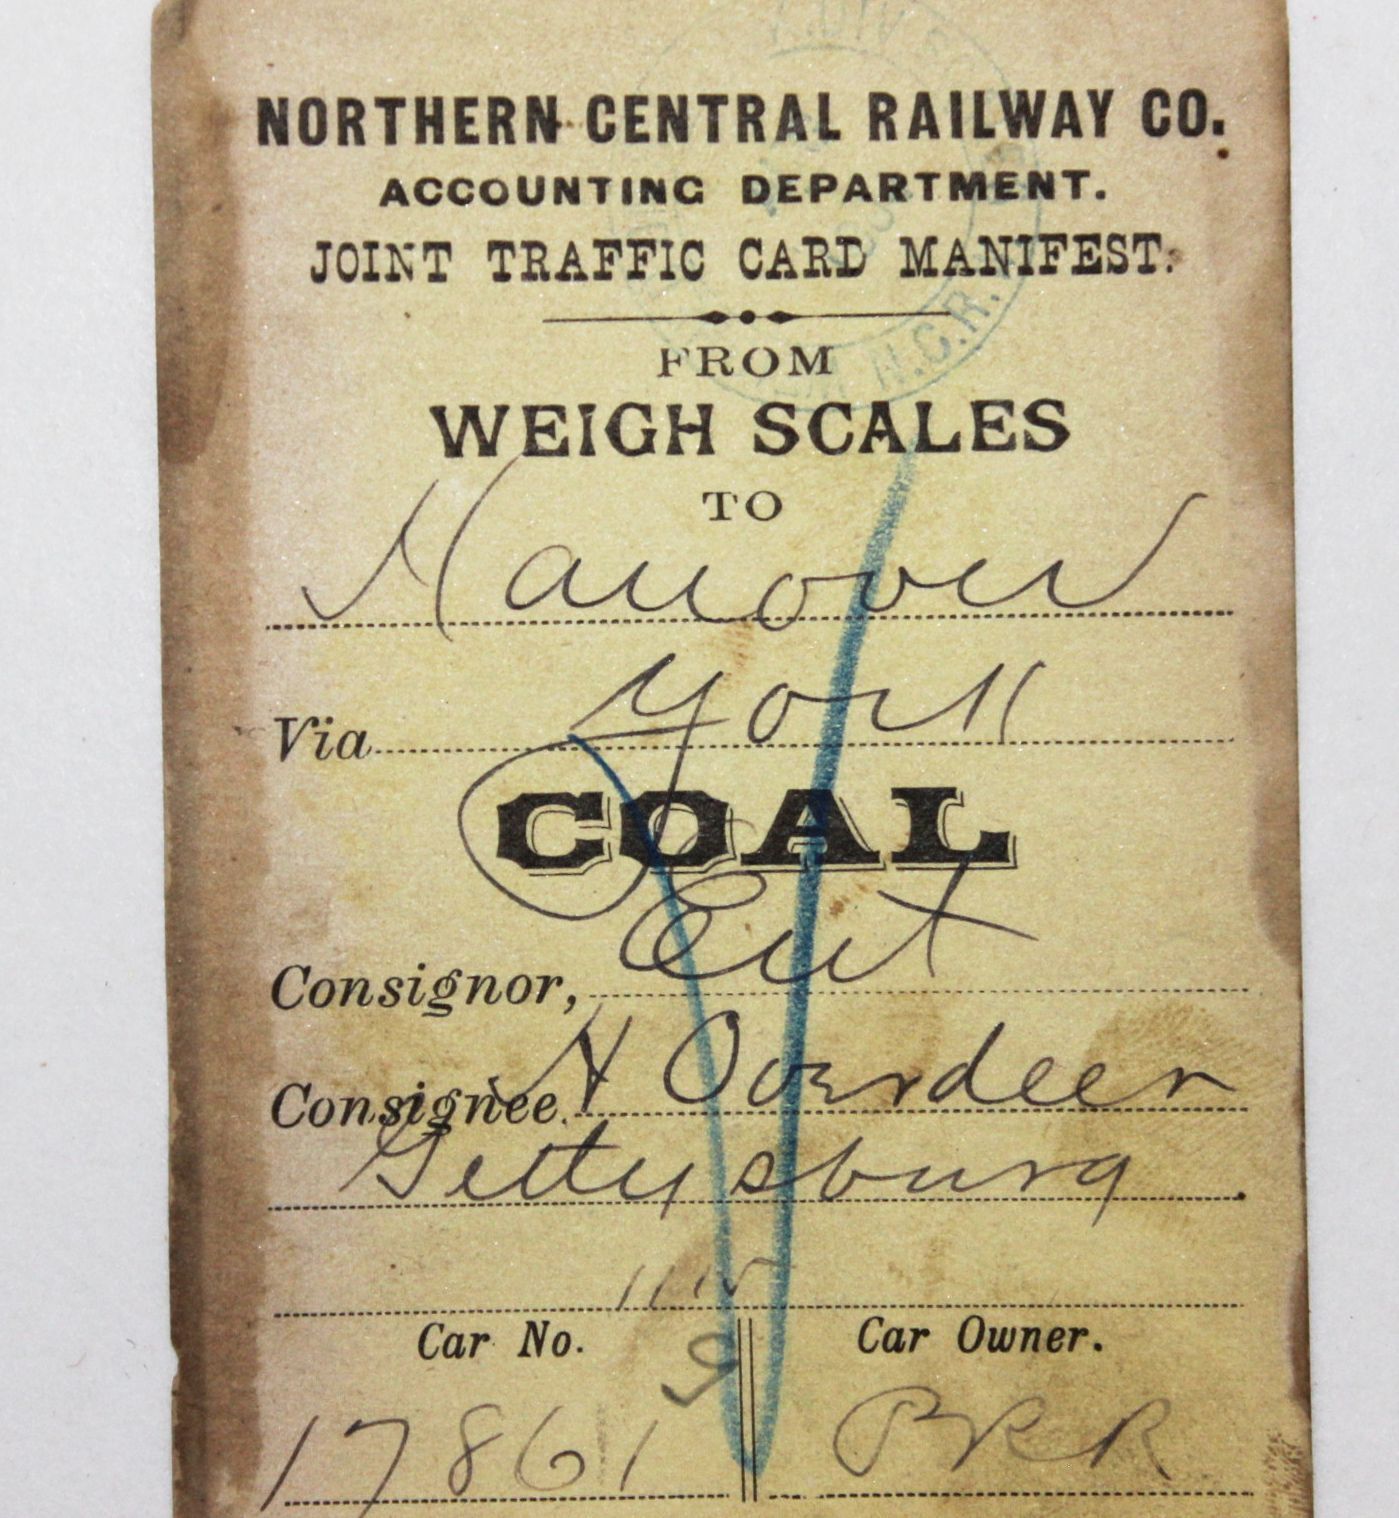 NORTHERN CENTRAL RAILWAY CO.
ACCOUNTING DEPARTMENT.
JOINT TRAFFIC CARD MANIFEST.
N.C.R.
FROM
WEIGH SCALES
TO
Hanover
Via York
COAL
Consignor,
Consignee. H Overdeer
Gettysburg
Car No. Car Owner.
17861 PRR